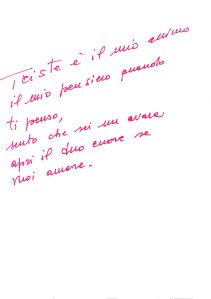 Triste è il mio animo
il mio pensiero quando
ti penso,
sento che sei un avara
apri il tuo cuore se
vuoi amore.